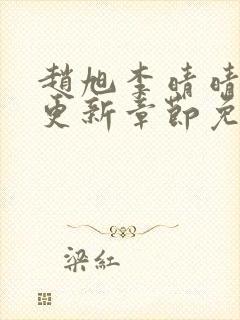 趙旭李晴晴
更新章節免
梁紅